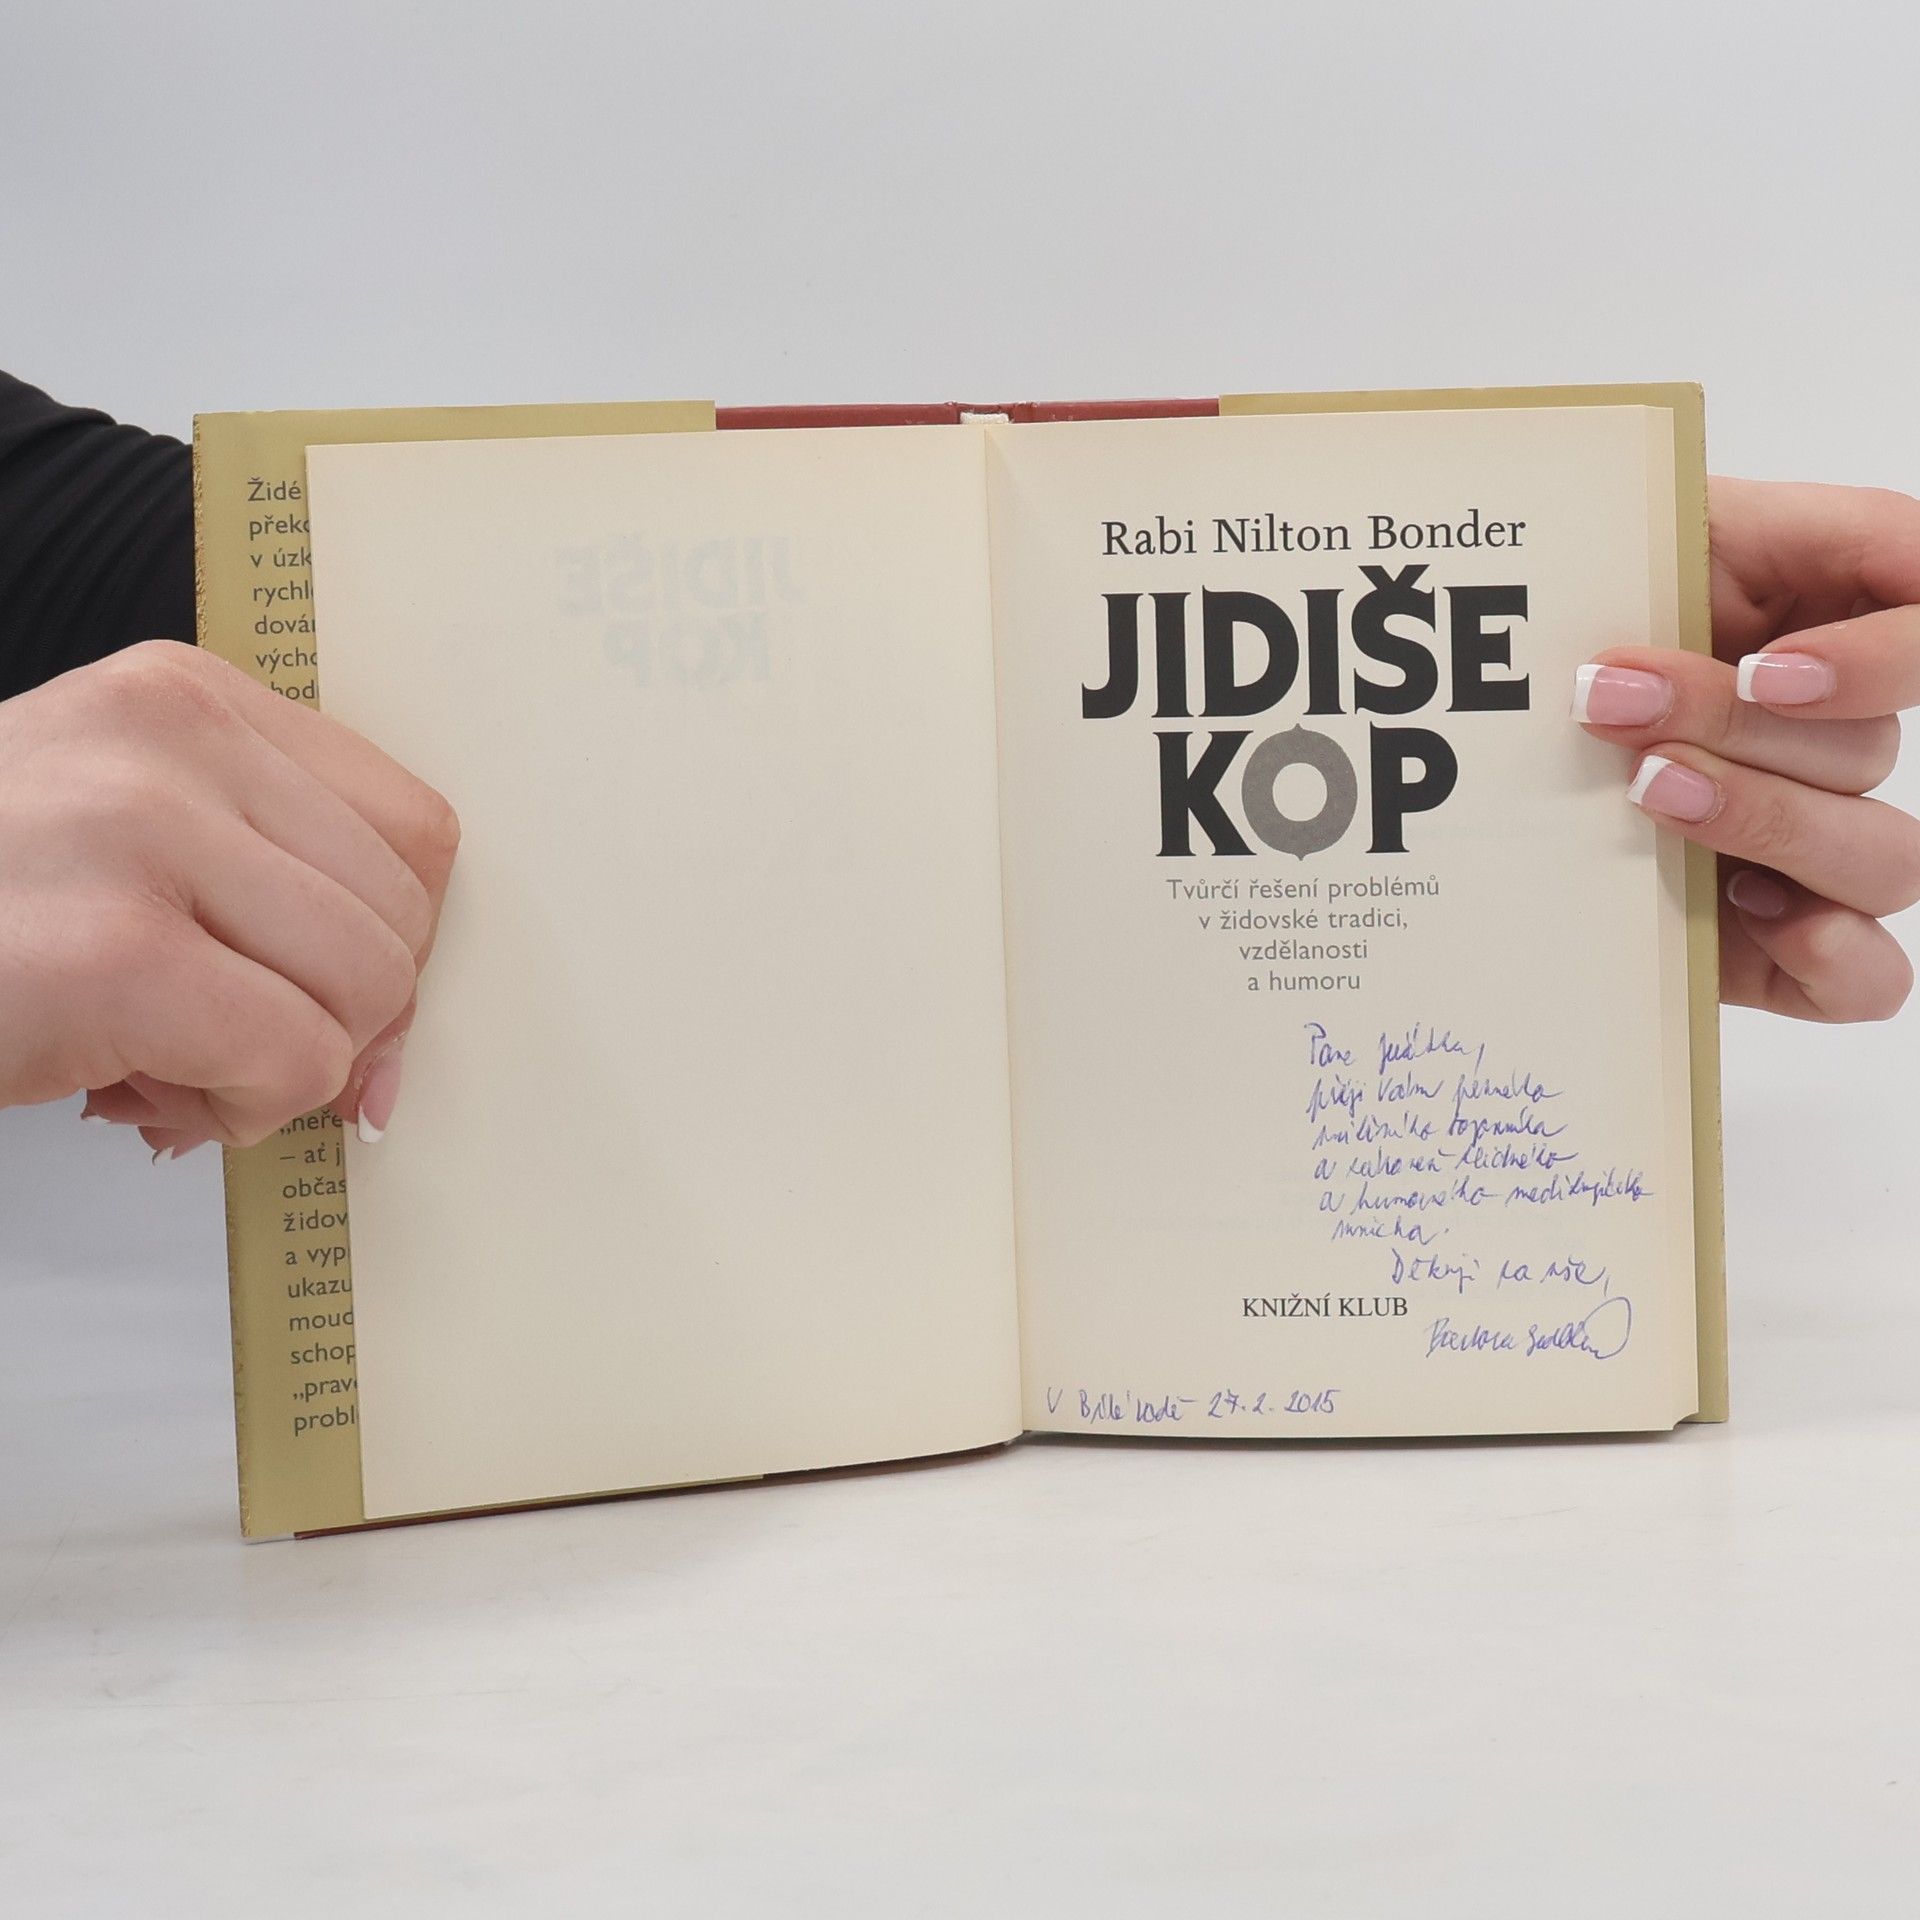 Židé
v úzk
rychl
výcho
„neře
– ať j
občas
židov
a vyp
ukazu
moud
schop
„prav
probl
Rabi Nilton Bonder
JIDIŠE
KOP
Tvůrčí řešení problémů
v židovské tradici,
vzdělanosti
a humoru
Pane
přeji Vám
a
a humorného
mnicha.
Děkuji za vše,
KNIŽNÍ KLUB
Barbora
V Bílé Vodě 27. 2. 2015